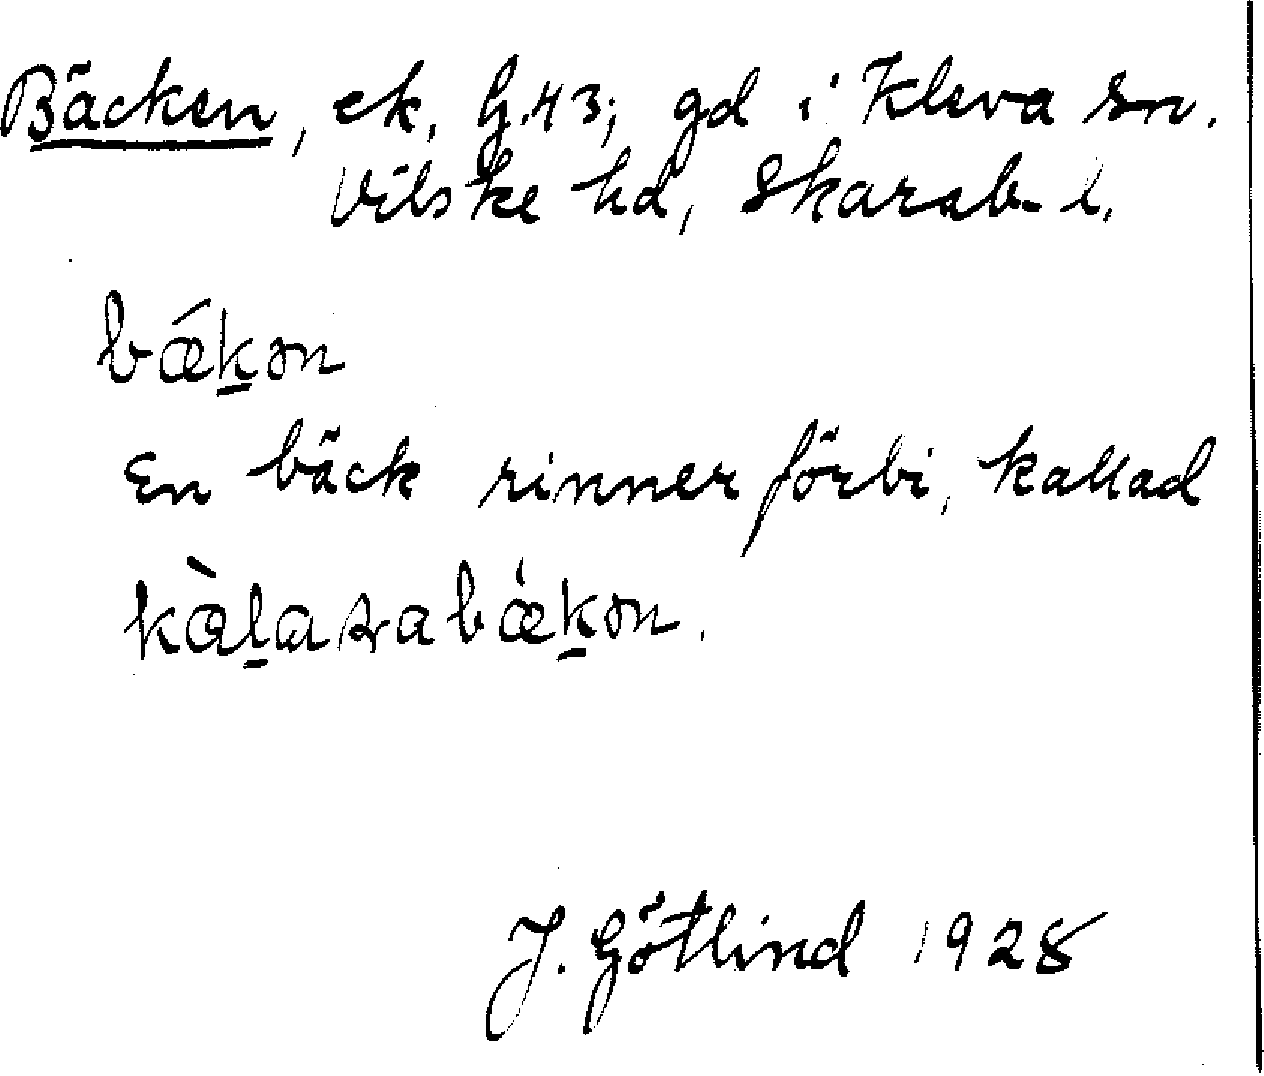 Bäcken, ek. G.43; gd i Kleva sn.
Vilske hd, Skarab. l.
bǽk̠ən
En bäck rinner förbi, kallad
kàl̠aʀabǽk̠ən.
J. Götlind 1928